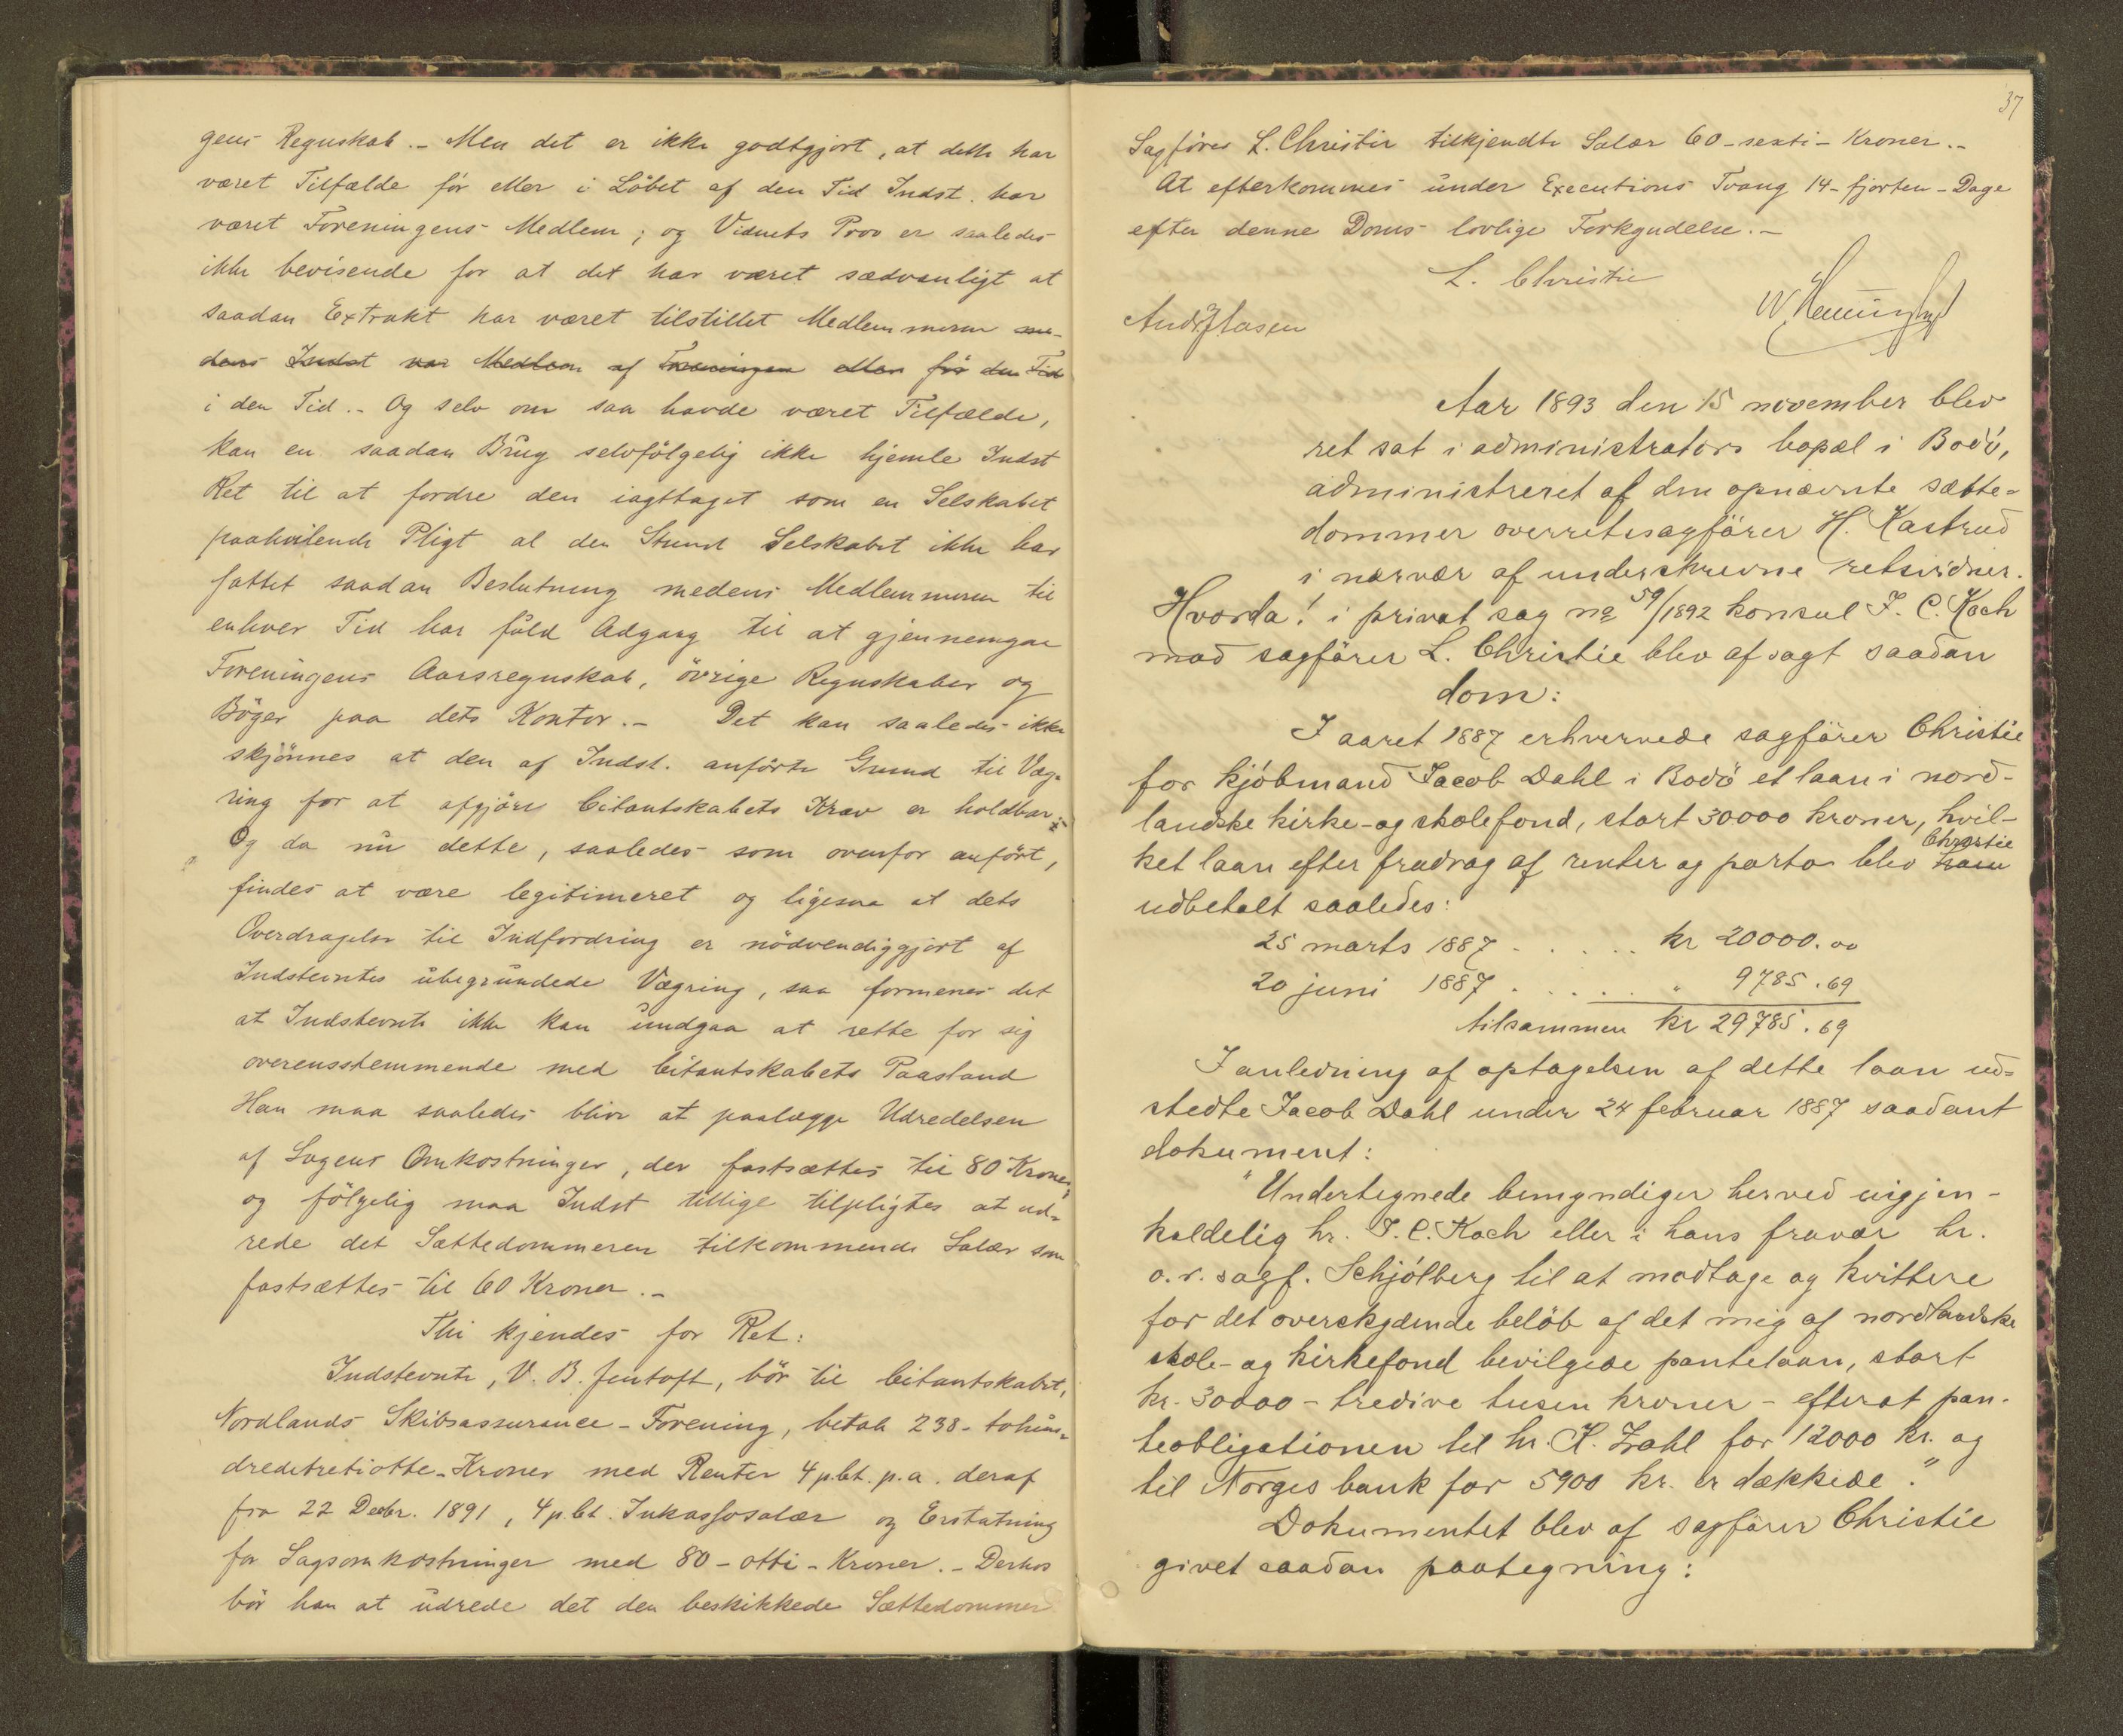 gens Regnskab. - Men det er ikke godtgjort, at dette har
været Tilfælde för eller i Löbet af den Tid Indst. har
været Foreningens Medlem; og Vidnets Prov er saaledes
ikke bevisende for at det har været sædvanligt at
saadan Extrakt har været tilstillet Medlemmerne me-
dens Indst var Medlem af Foreningen eller för den Tid
i den Tid. - Og selv om saa havde været Tilfælde,
kan en saadan Brug selvfölgelig ikke hjemle Indst
Ret til at fordre den iagttaget som en Selskabet
paahvilende Pligt al den Stund Selskabet ikke har
fattet saadan Beslutning medens Medlemmerne til
enhver Tid har fuld Adgang til at gjennemgaa
Foreningens Aarsregnskab, övrige Regnskaber og
Böger paa dets Kontor. - Det kan saaledes ikke
skjönnes at den af Indst. anförte Grund til Væg-
ring for at afgjöre Citantskabets Krav er holdbar.
Og da nu dette, saaledes som ovenfor anfört,
findes at være legitimeret og ligesaa at dets
Overdragelse til Indfordring er nödvendiggjort af
Indstevntes ubegrundede Vægring, saa formenes det
at Indstevnte ikke kan undgaa at rette for sig
overensstemmende med Citantskabets Paastand
Han maa saaledes blive at paalægge Udredelsen
af Sagens Omkostninger, der fastsættes til 80 Kroner,
og fölgelig maa Indst tillige tilpligtes at ud-
rede det Sættedommeren tilkommende Salær som
fastsættes til 60 Kroner. -
Thi kjendes for Ret:
Indstevnte, V. B. Jentoft, bör til Citantskabet,
Nordlands Skibsassurance-Forening, betale 238 - tohun-
dredetretiotte - Kroner med Renter 4 p.Ct. p.a. deraf
fra 22 Decbr. 1891, 4 p.Ct. Inkassosalær og Erstatning
for Sagsomkostninger med 80 - otti - Kroner. - Derhos
bör han at udrede det den beskikkede Sættedommer
37
Sagförer L. Christie tilkjendte Salær 60 - sexti - Kroner. -
At efterkommes under Executions Tvang 14 - fjorten - Dage
efter denne Doms lovlige Forkyndelse. -
L. Christie
Aar 1893 den 15 november blev
ret sat i administrators bopæl i Bodö,
administreret af den opnævnte sætte-
dommer overretssagförer H. Kastrud
i nærvær af underskrevne retsvidner.
Hvorda! i privat sag no 59/1892 konsul J. C. Koch
mod sagförer L. Christie blev afsagt saadan
dom:
I aaret 1887 erhvervede sagförer Christie
for kjöbmand Jacob Dahl i Bodö et laan i nord-
landske kirke- og skolefond, stort 30000 kroner, hvil-
Christie
ket laan efter fradrag af renter og porto blev ham
udbetalt saaledes:
25 marts 1887 . . . . . kr 20000.00
20 juni 1887 . . . . . " 9785.69
tilsammen kr 29785.69
I anledning af optagelsen af dette laan ud-
stedte Jacob Dahl under 24 februar 1887 saadant
dokument:
"Undertegnede bemyndiger herved uigjen-
kaldelig hr. J. C. Koch eller i hans fravær hr.
o.r. sagf. Schjölberg til at modtage og kvittere
for det overskydende belöb af det mig af nordlandske
skole- og kirkefond bevilgede pantelaan, stort
kr. 30000 - tredive tusen kroner - efterat pan-
teobligationen til hr. K. Zahl for 12000 kr. og
til Norges bank for 5900 kr. er dækkede."
Dokumentet blev af sagförer Christie
givet saadan paategning: